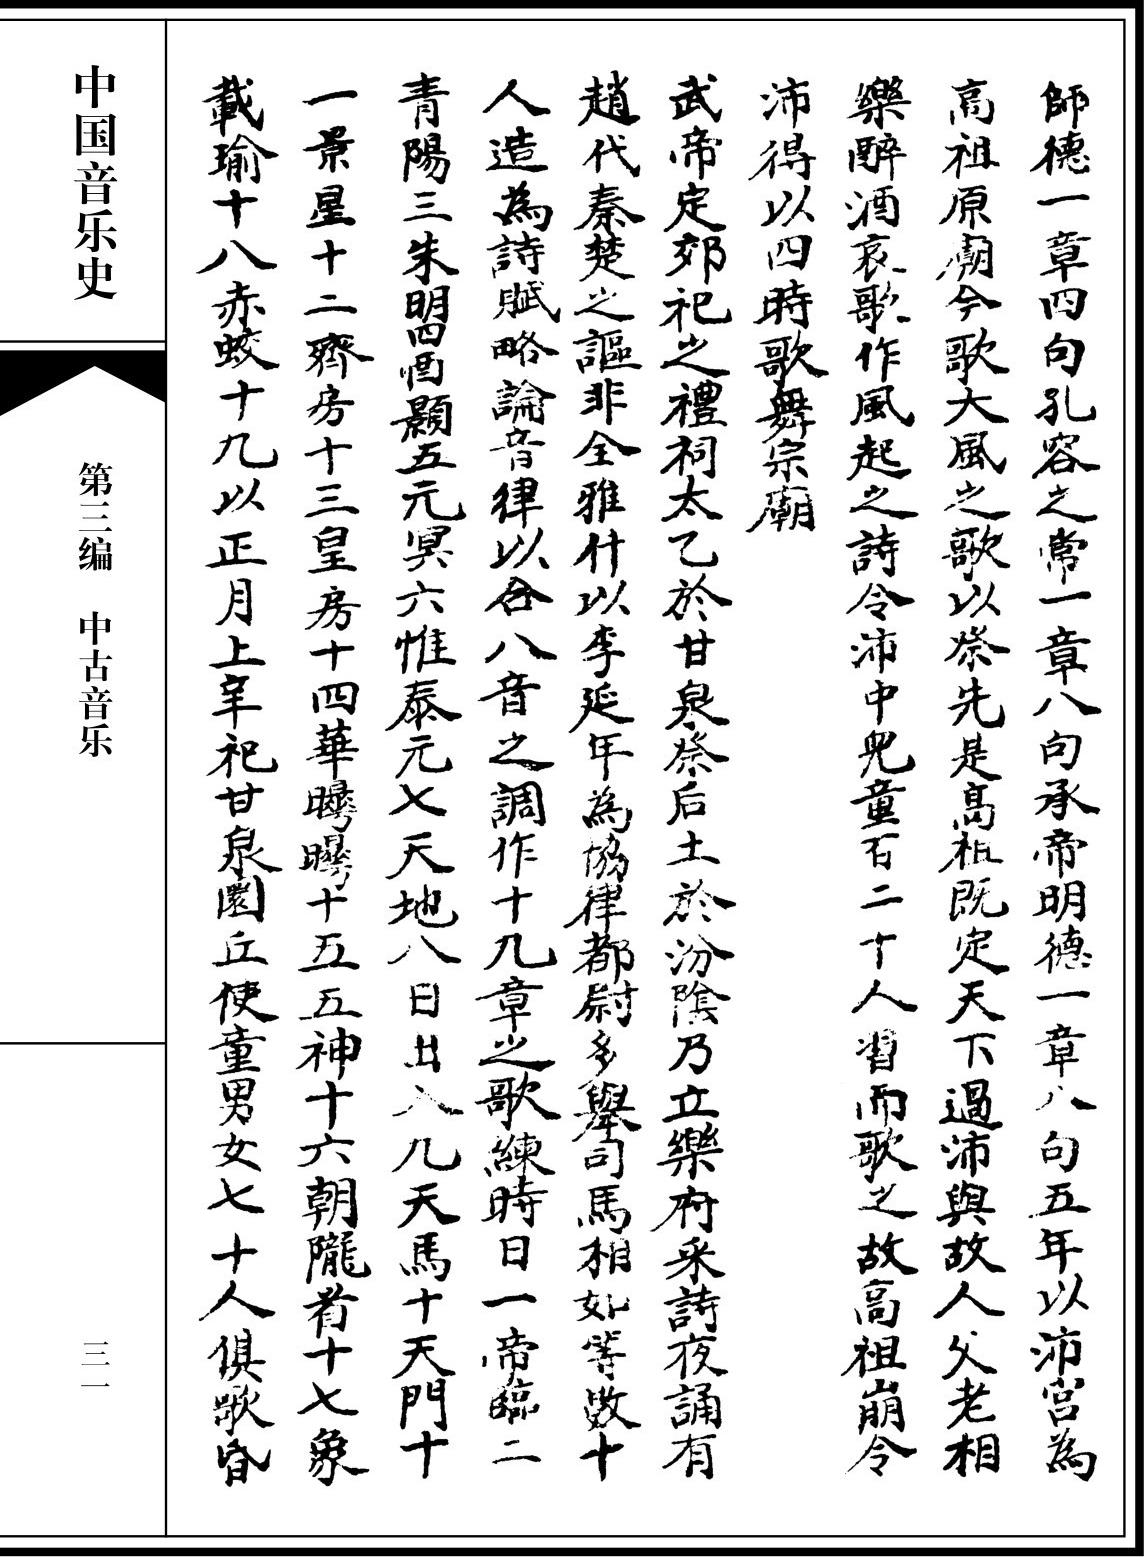 師德一章四句孔容之常一章八句承帝明德一章八句五年以沛宮為
高祖原廟今歌大風之歌以祭先是高祖既定天下過沛與故人父老相
樂醉酒哀歌作風起之詩令沛中兒童百二十人習而歌之故高祖崩令
沛得以四時歌舞宗廟
武帝定郊祀之禮祠太乙於甘泉祭后土於汾陰乃立樂府采詩夜誦有
趙代秦楚之謳非全雅什以李延年為協律都尉多舉司馬相如等數十
人造為詩賦略論音律以合八音之調作十九章之歌練時日一帝臨二
青陽三朱明四西顥五元冥六惟泰元七天地八日出入九天馬十天門十
一景星十二齊房十三皇房十四華曄曄十五五神十六朝隴首十七象
載瑜十八赤蛟十九以正月上辛祀甘泉圜丘使童男女七十人俱歌昏
中国音乐史
第三编 中古音乐
三一